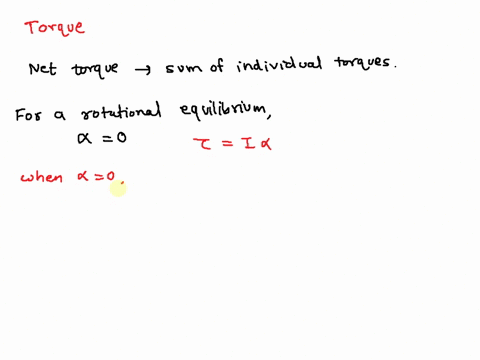 Torque
Net torque → sum of individual torques.
For a rotational equilibrium,
α = 0 τ = I α
when α = 0,